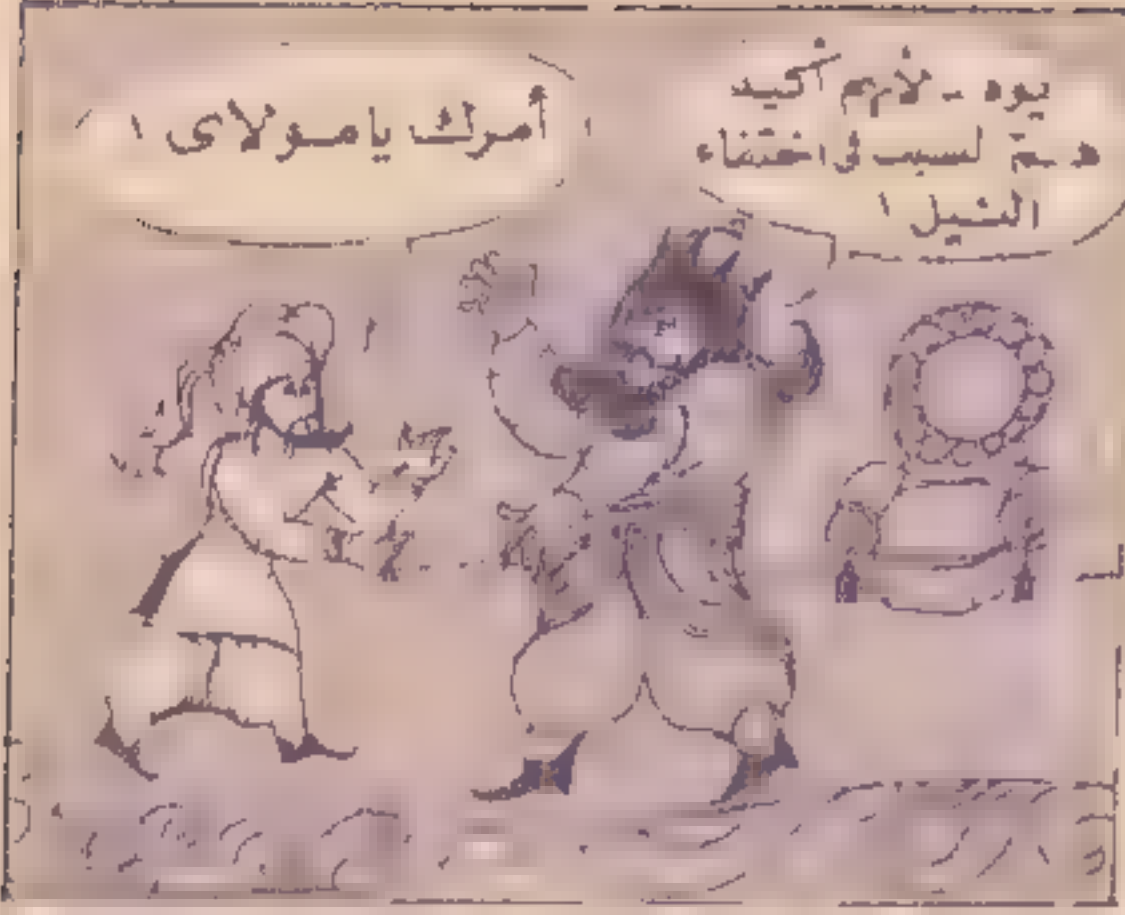 يوه ـ لأم أكيد
هـمّ لسبب فى اختفاء
النيل !
أمرك يا مولاى !